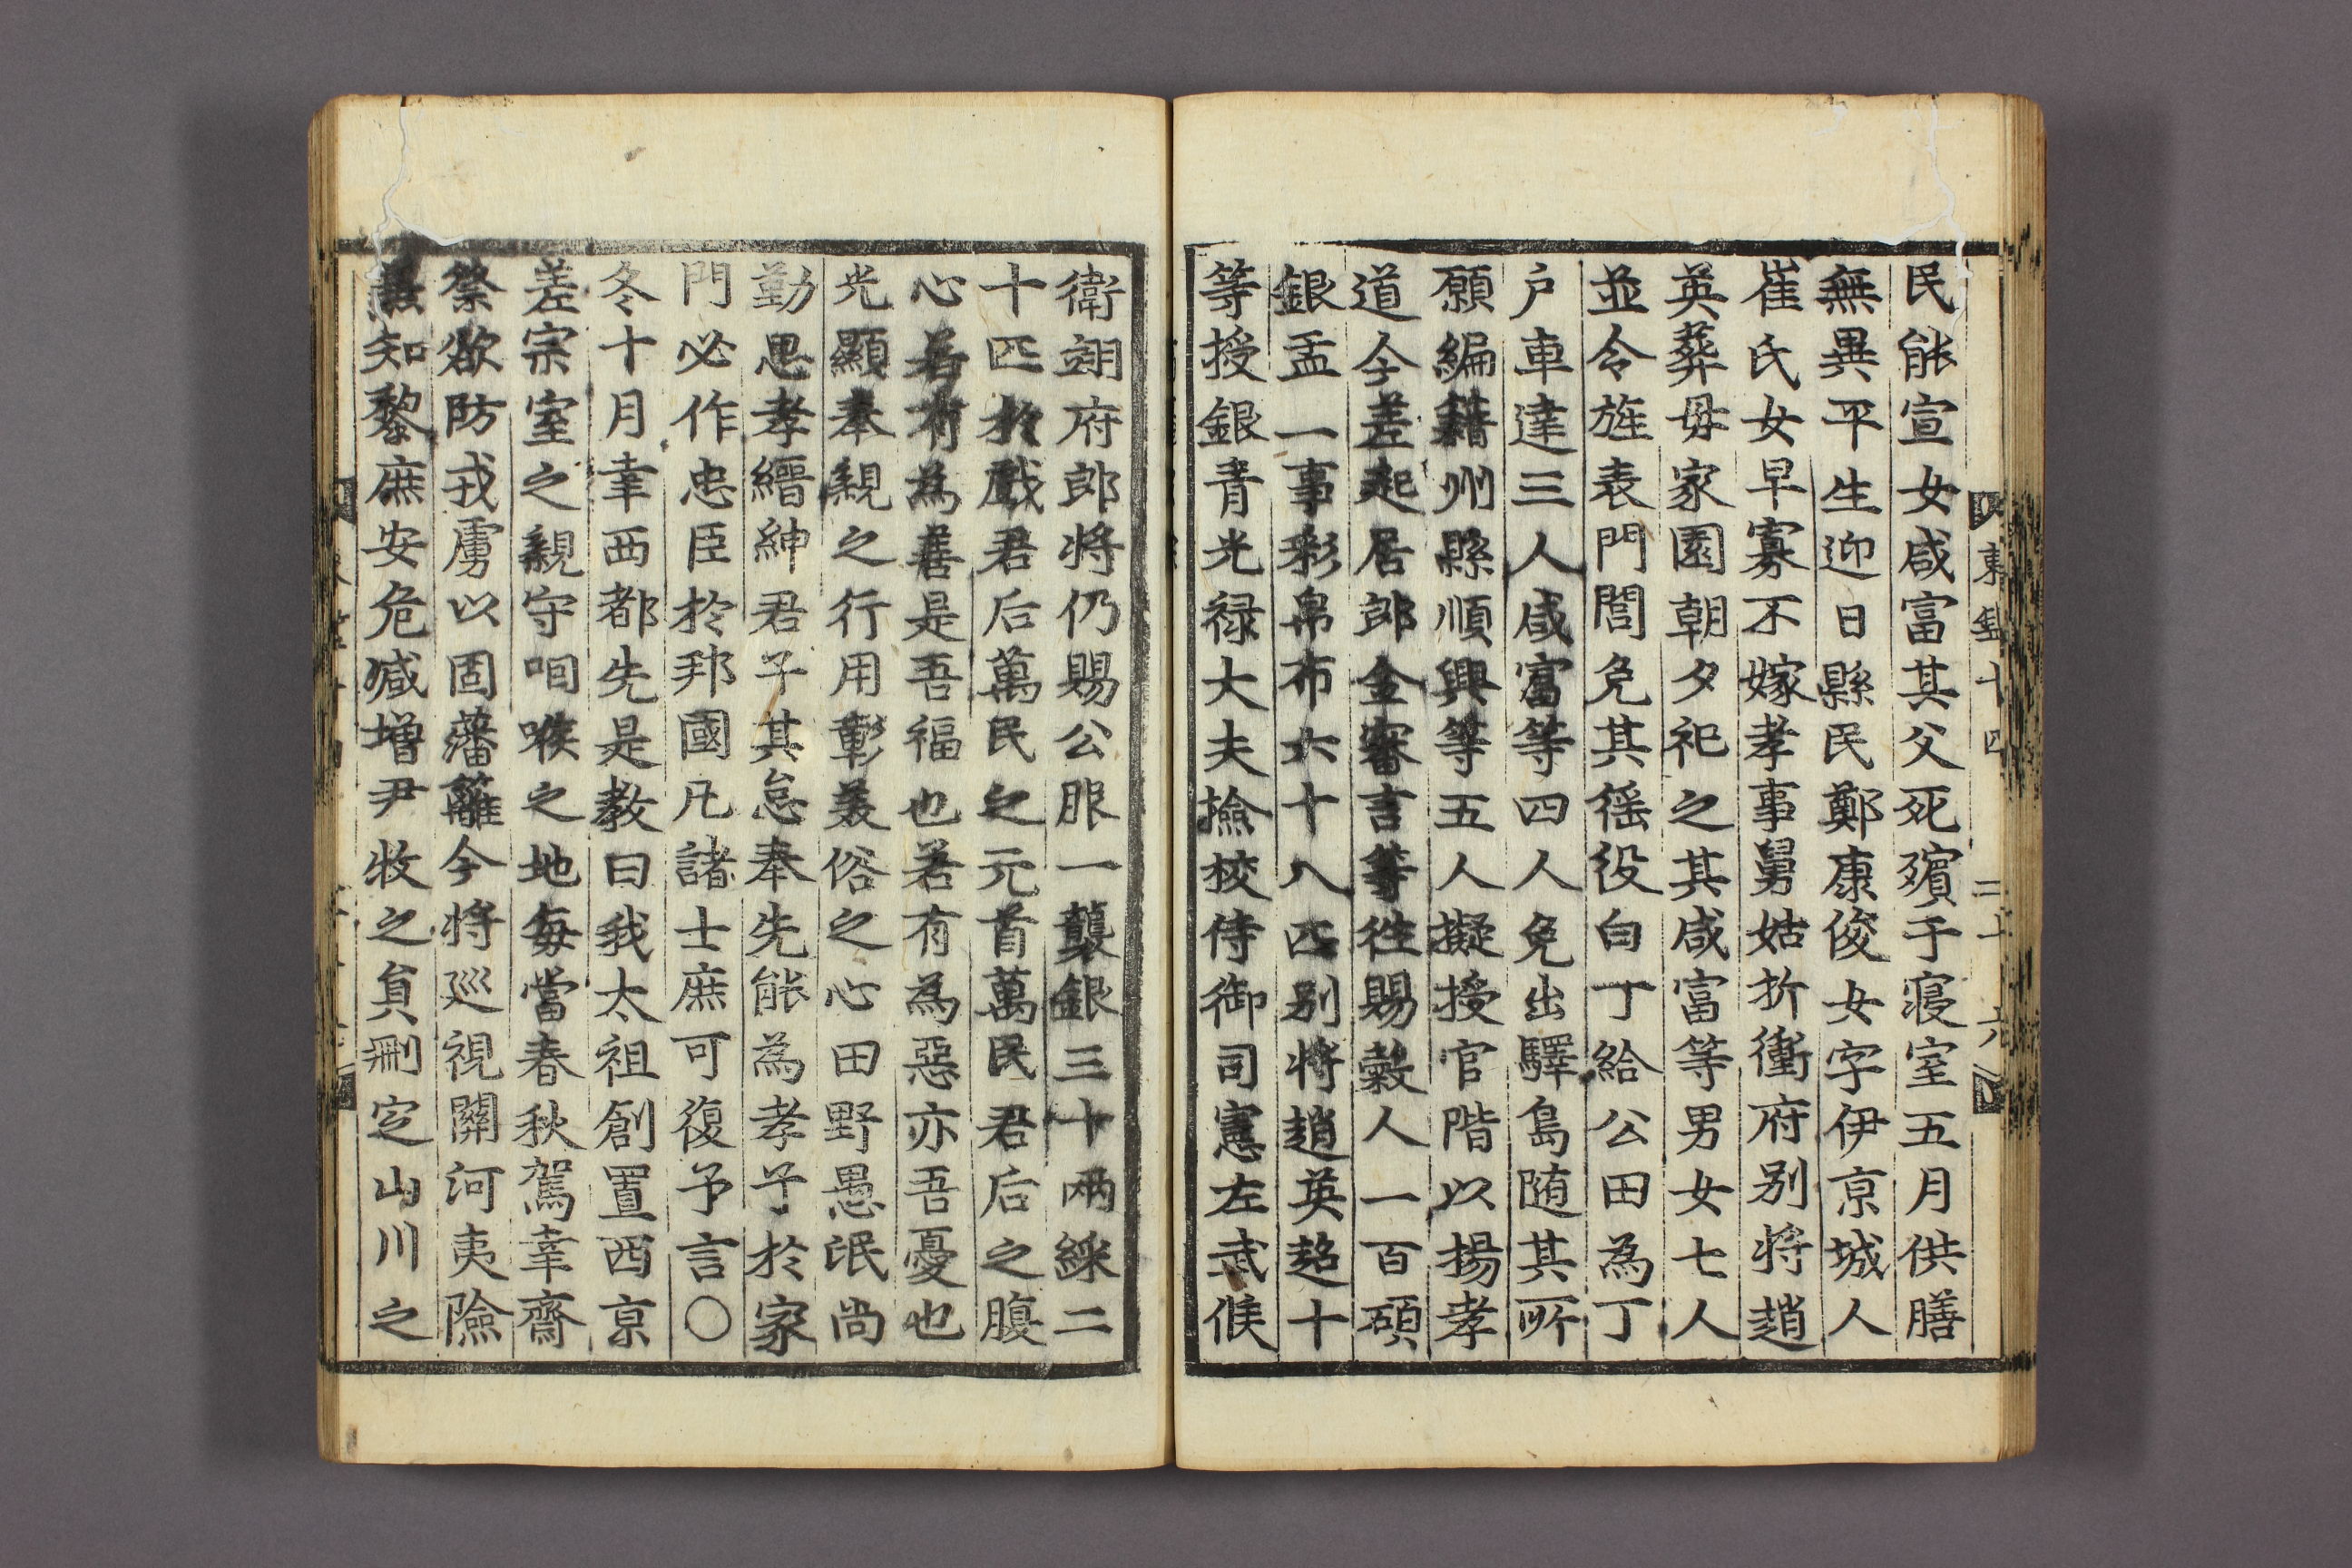 東鑑十四
二十六
民能宣女咸富其父死殯于寢室五月供膳
無異平生迎日縣民鄭康俊女字伊京城人
崔氏女早寡不嫁孝事舅姑折衝府别将趙
英葬毋家園朝夕祀之其咸富等男女七人
並令旌表門閭免其徭役白丁給公田為丁
户車達三人咸富等四人免出驛島随其所
願編籍州縣順興等五人擬授官階以揚孝
道今差起居郎金審言等往賜糓人一百碩
銀盂一事彩帛布六十八匹别將趙英超十
等授銀青光禄大夫撿校侍御司憲左武候
衛翊府郎将仍賜公服一襲銀三十兩綵二
十匹於戲君后萬民之元首萬民君后之腹
心若有為善是吾福也若有為惡亦吾憂也
光顯奉親之行用彰美俗之心田野愚氓尚
勤思孝縉紳君子其怠奉先能為孝子於家
門必作忠臣於邦國凡諸士庶可復予言〇
冬十月幸西都先是教曰我太祖創置西京
差宗室之親守咽喉之地每當春秋駕幸齋
祭欲防戎虜以固藩籬今将巡視關河夷險
知黎庶安危减增尹牧之負刪定山川之